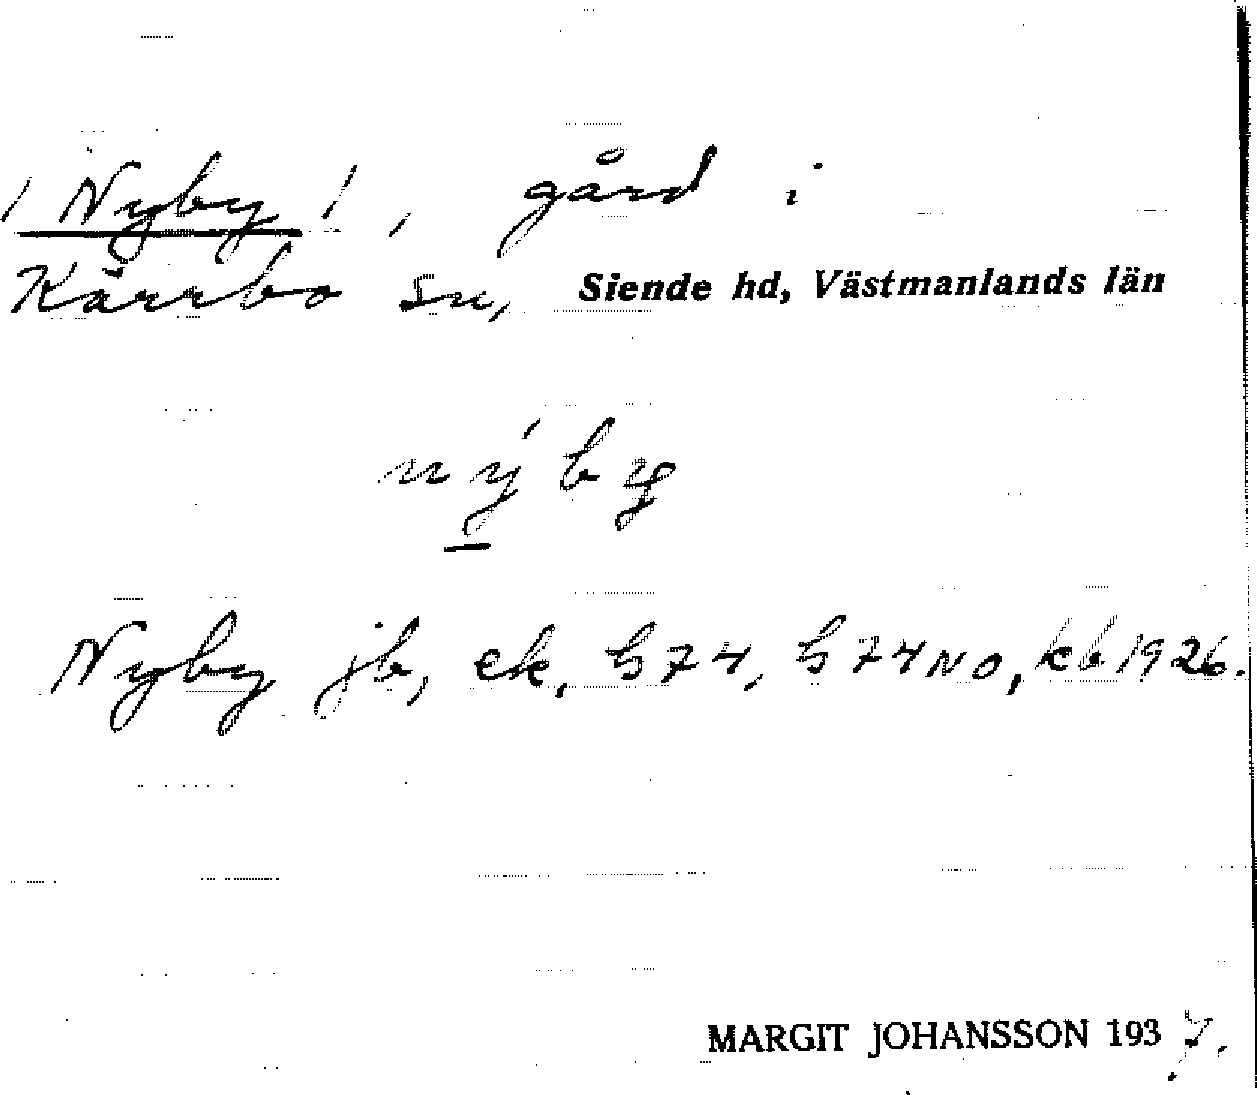 / Nyby /, gård i
Kärrbo sn, Siende hd, Västmanlands län
nýby
Nyby jb, ek, h74, h74NO, kb 1926.
MARGIT JOHANSSON 1937.